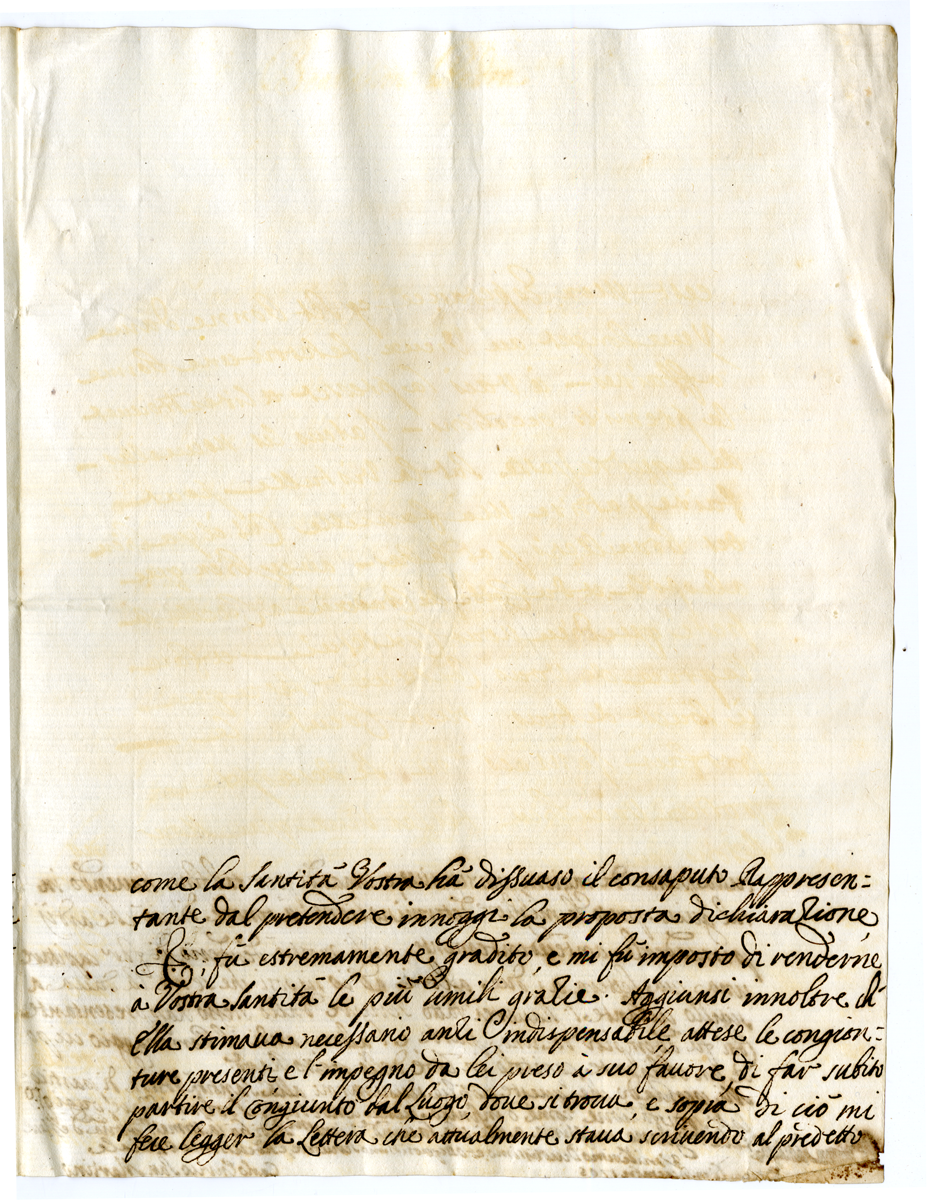 come la Santità Vostra hà dissuaso il consaputo Rappresen=
tante dal pretendere innoggi la proposta dichiarazione,
fù estremamente gradito, e mi fù imposto di renderne
à Vostra Santità le più umili grazie. Aggiunsi innoltre ch'
Ella stimava necessario anzi indispensabile, attese le congion=
ture presenti, e l'impegno da lei preso à suo favore, di far subito
partire il Congiunto dal Luogo, dove si trova, e sopra di ciò mi
fece legger la Lettera che attualmente stava scrivendo al predetto